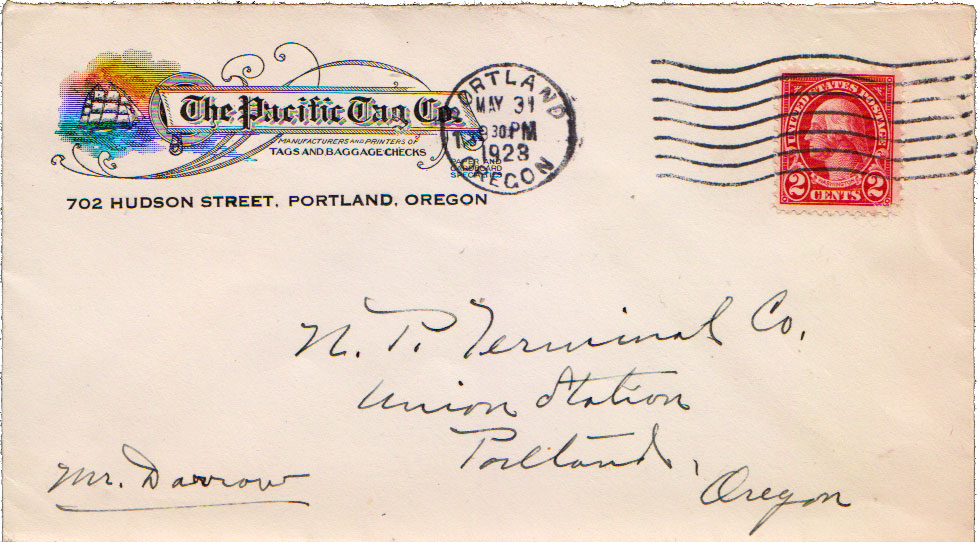 The Pacific Tag Co.
MANUFACTURERS AND PRINTERS OF
TAGS AND BAGGAGE CHECKS
PAPER AND
CARDBOARD
SPECIALTIES
702 HUDSON STREET, PORTLAND, OREGON
PORTLAND
MAY 31
30 PM
1923
OREGON
UNITED STATES POSTAGE
2 CENTS 2
N. P. Terminal Co.
Union Station
Portland,
Oregon
Mr. Darrow